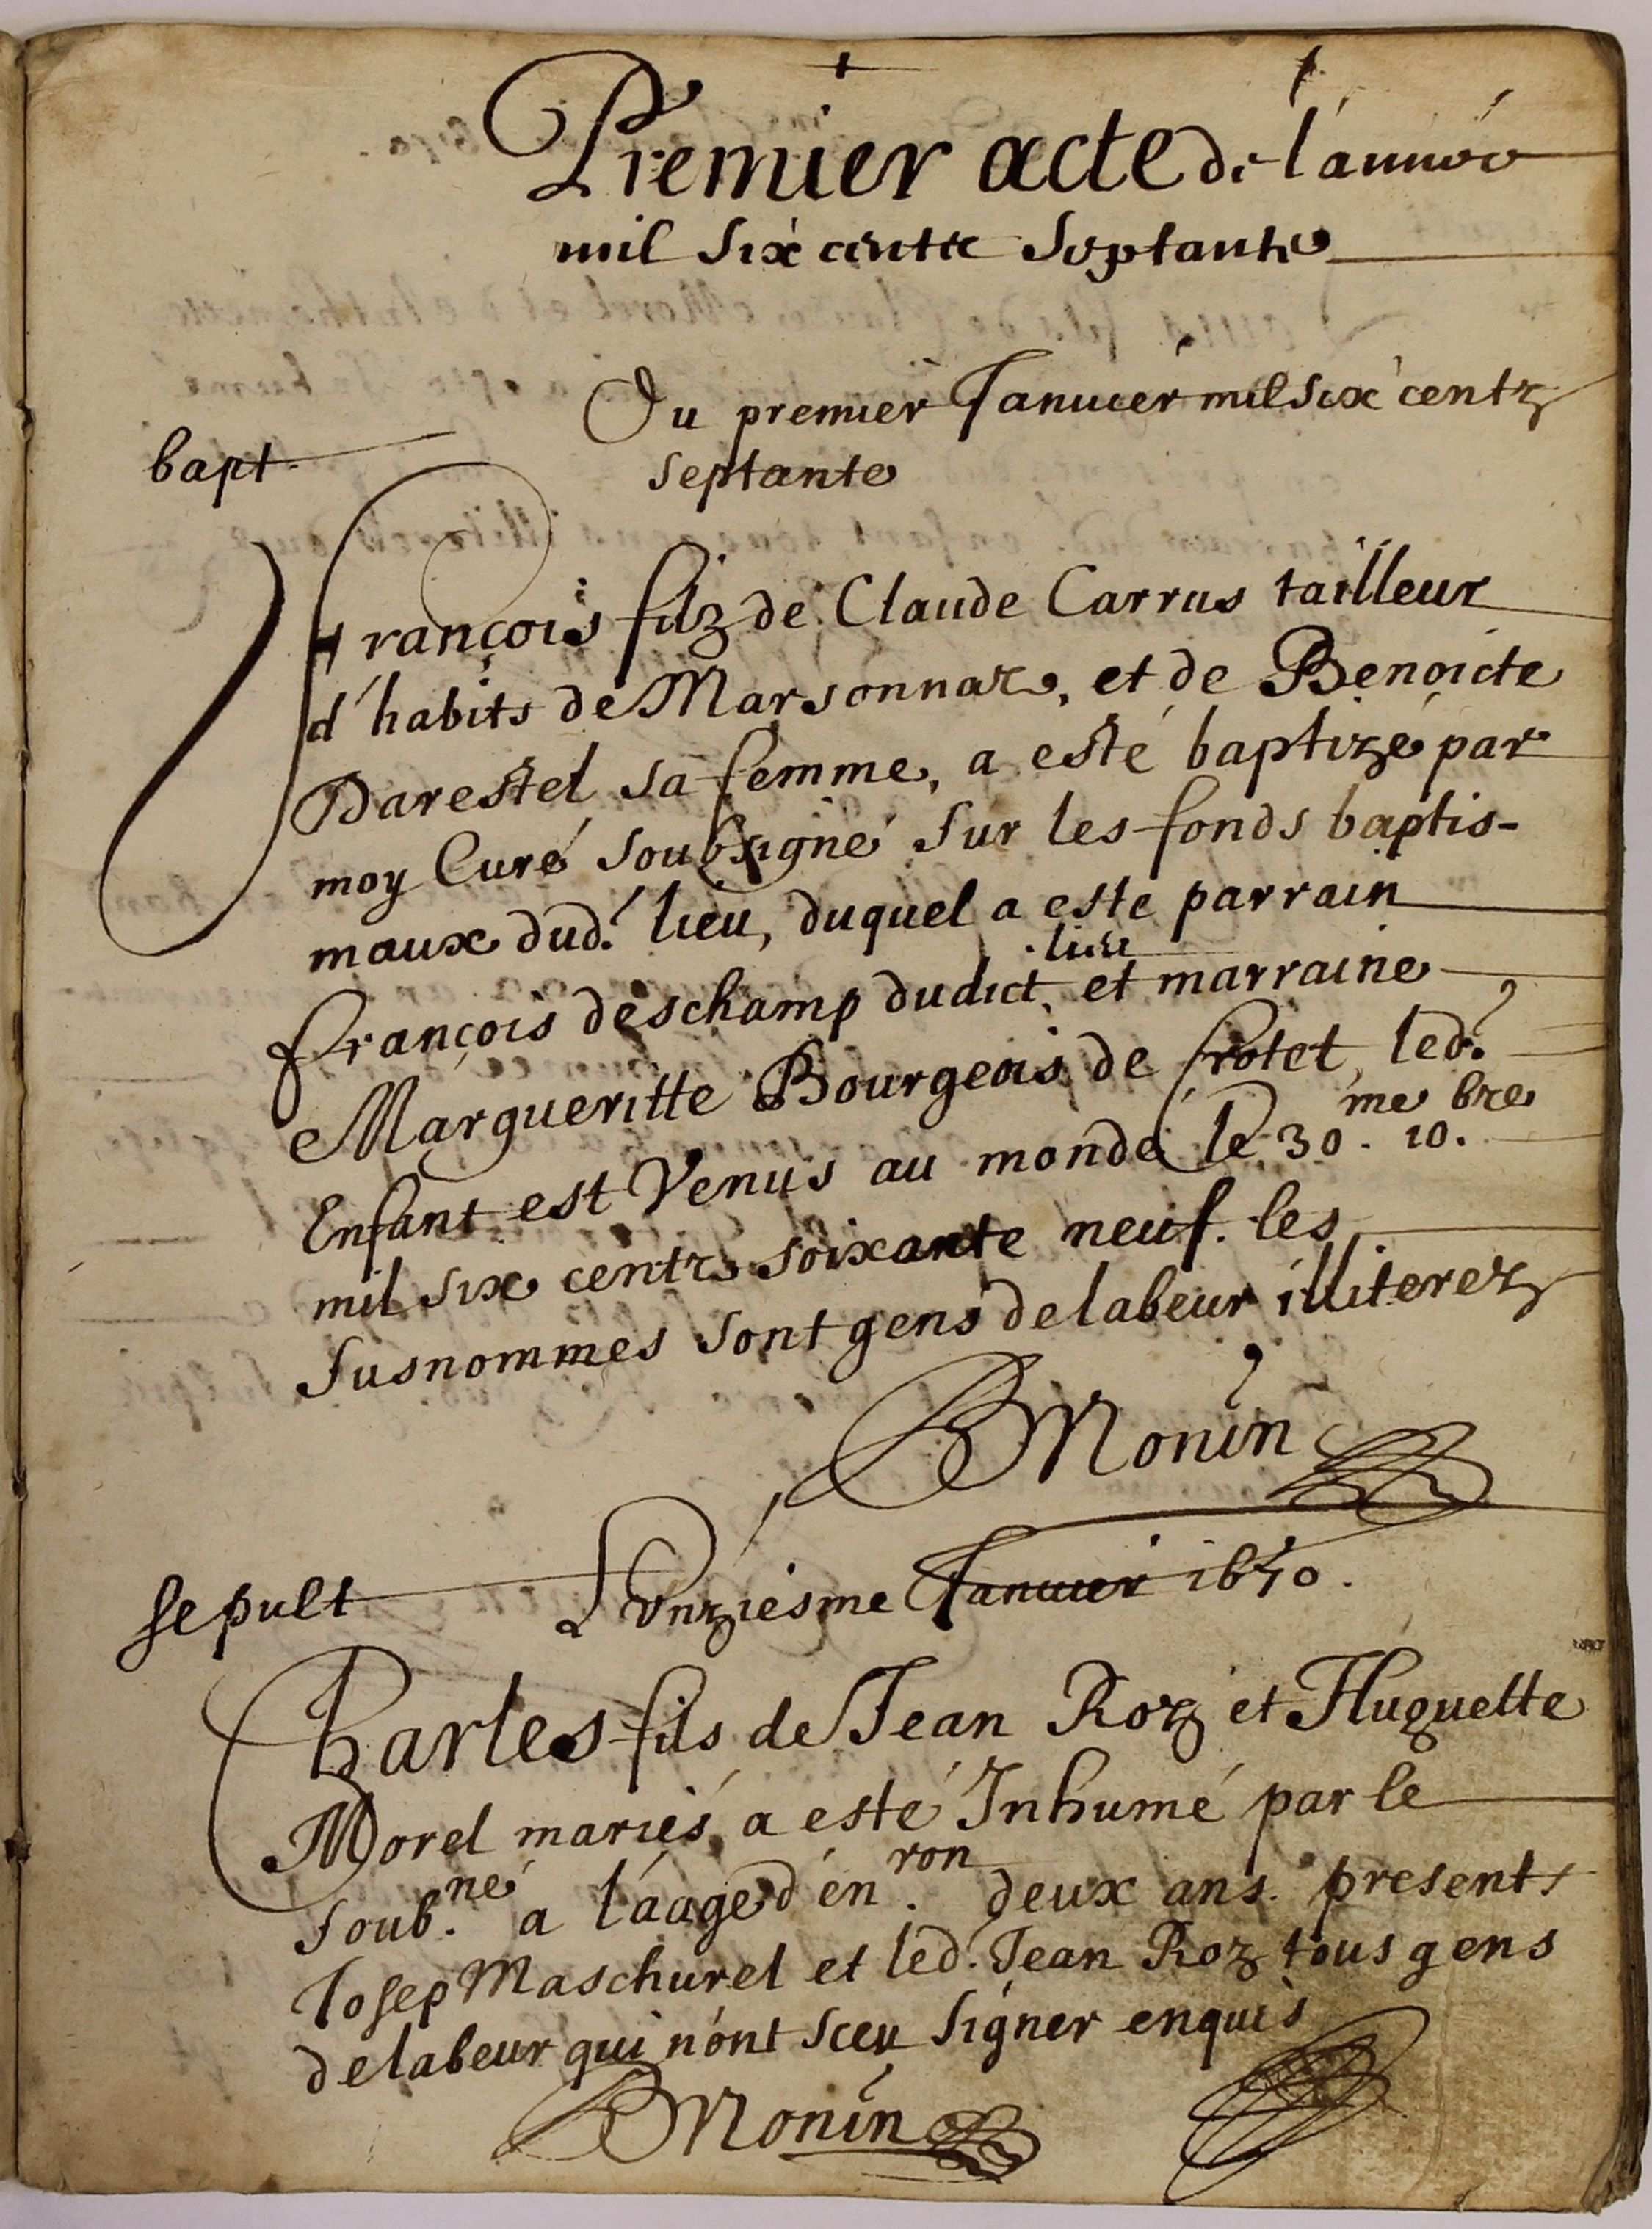 Premier acte de l'année
mil six centz septante
Du premier Januier mil six centz
bapt.
septante
François filz de Claude Carrus tailleur
d'habits de Marsonnaz, et de Benoicte
Darestel sa femme, a esté baptizé par
moy Curé soubsigné sur les fonds baptis-
maux dud. lieu, duquel a este parrain
lieu
François deschamp dudict, et marraine
Margueritte Bourgeois de frotet, led.
me bre
Enfant est Venus au monde le 30. 10.
mil six centz soixante neuf. les
susnommes sont gens de labeur illiterez
BMonin
sepult
L'onziesme Januier 1670.
Charles fils de Jean Roz et Huguette
Morel mariés, a esté Inhumé par le
né ron
soub. a l'aage d'en. deux ans. presents
Josep Maschurel et led. Jean Roz tous gens
de labeur qui n'ont sceu signer enquis
BMonin